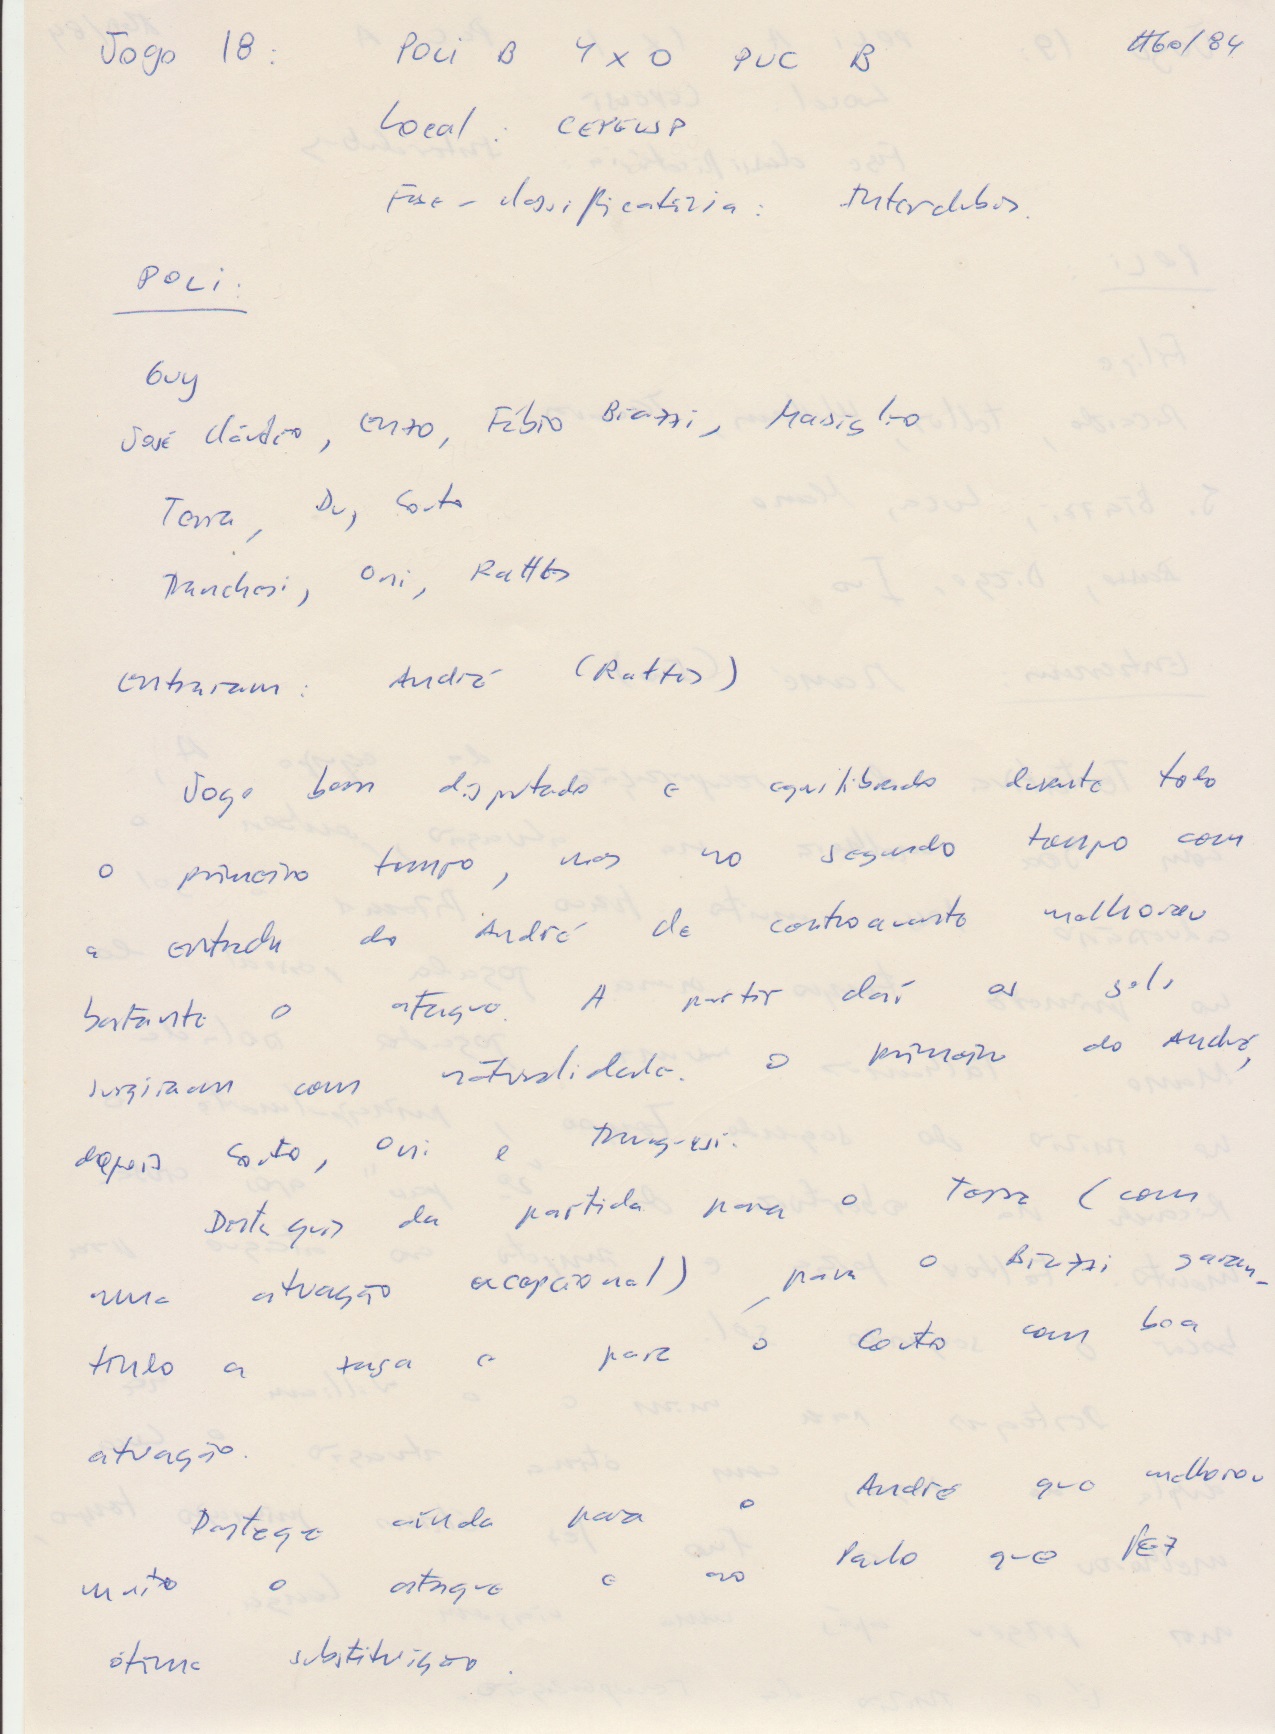 Jogo 18: POLI B 4 x 0 PUC B /84
Local: CEPEUSP
Fase-classificatória: Interclubes.
POLI:
Guy
José Cláudio, Enzo, Fábio Biazzi, Masiglio
Terra, Du, Couto
Oni, Rattes
Entraram: André (Rattes)
Jogo bem disputado e equilibrado durante todo
o primeiro tempo, mas no segundo tempo com
a entrada do André de centroavante melhorou
bastante o ataque. A partir daí os gols
surgiram com naturalidade. O primeiro do André,
depois Couto, Oni e
Destaques da partida para o Terra (com
uma atuação excepcional), para o Biazzi garan-
tindo a zaga e para o Couto com boa
atuação.
Destaque ainda para o André que melhorou
muito o ataque e ao Paulo que fez
ótima substituição.